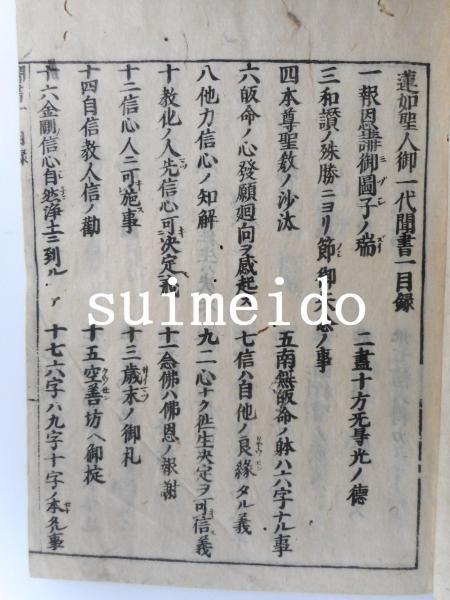 蓮如聖人御一代聞書一目録
一報恩講御圖子ノ瑞 二盡十方无㝵光ノ德
三和讃ノ殊勝ニヨリ節御 念ノ事
四本尊聖敎ノ沙汰 五南無皈命ノ躰ハ六字ナル事
六皈命ノ心發願廻向ヲ感起ス 七信ハ自他ノ良緣タル義
八他力信心ノ知解 九二心ナク徃生決定ヲ可信義
十敎化ノ人先信心可決定 十一念佛ハ佛恩ノ報謝
十二信心人ニ可施事 十三歳末ノ御礼
十四自信敎人信ノ勸 十五空善坊ヘ御掟
十六金剛信心自然浄土ニ到ル 十七六字ハ九字十字ノ本タル事
聞書一 目録
suimeido